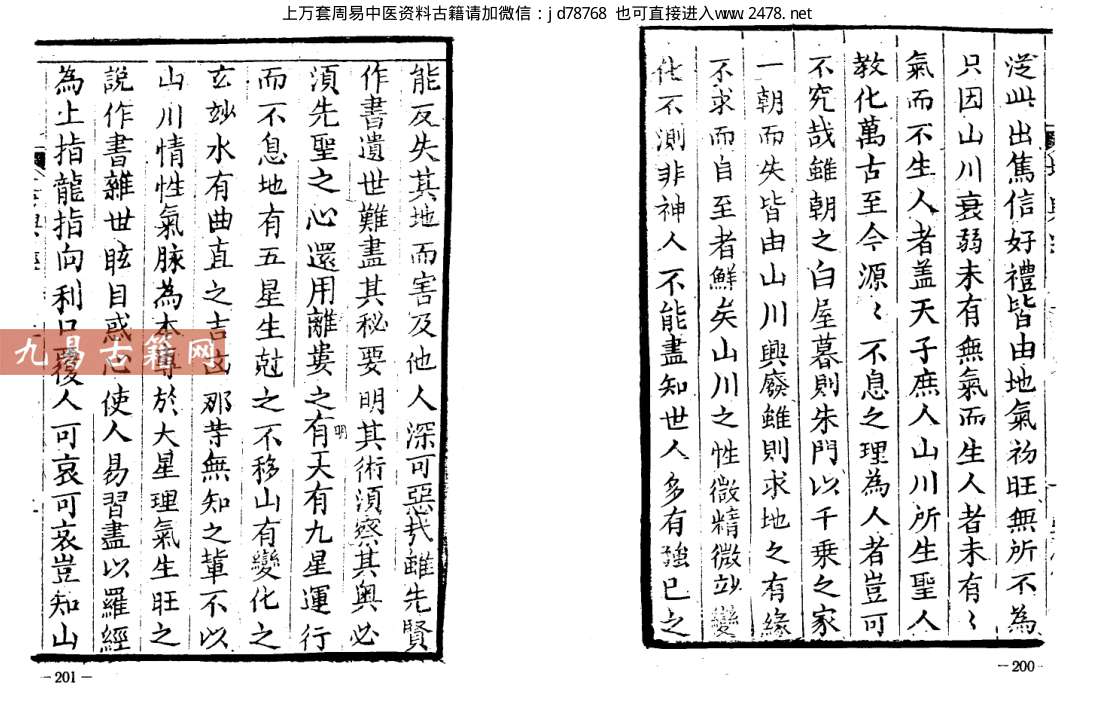 上万套周易中医资料古籍请加微信：jd78768 也可直接进入www.2478.net
從此出篤信好禮皆由地氣初旺無所不為
只因山川衰弱未有無氣而生人者未有〻
氣而不生人者盖天子庶人山川所生聖人
教化萬古至今源〻不息之理為人者豈可
不究哉雖朝之白屋暮則朱門以千乘之家
一朝而失皆由山川興廢雖則求地之有緣
不求而自至者鮮矣山川之性微精微妙變
化不測非神人不能盡知世人多有強已之
-200-
能反失其地而害及他人深可惡哉雖先賢
作書遺世難盡其秘要明其術須察其奥必
須先聖之心還用離婁之有天有九星運行
明
而不息地有五星生尅之不移山有變化之
玄妙水有曲直之吉凶那等無知之輩不以
山川情性氣脉為本專於大星理氣生旺之
說作書雜世眩目惑心使人易習盡以羅經
為上指龍指向利口覆人可哀可哀豈知山
-201-
九易古籍网